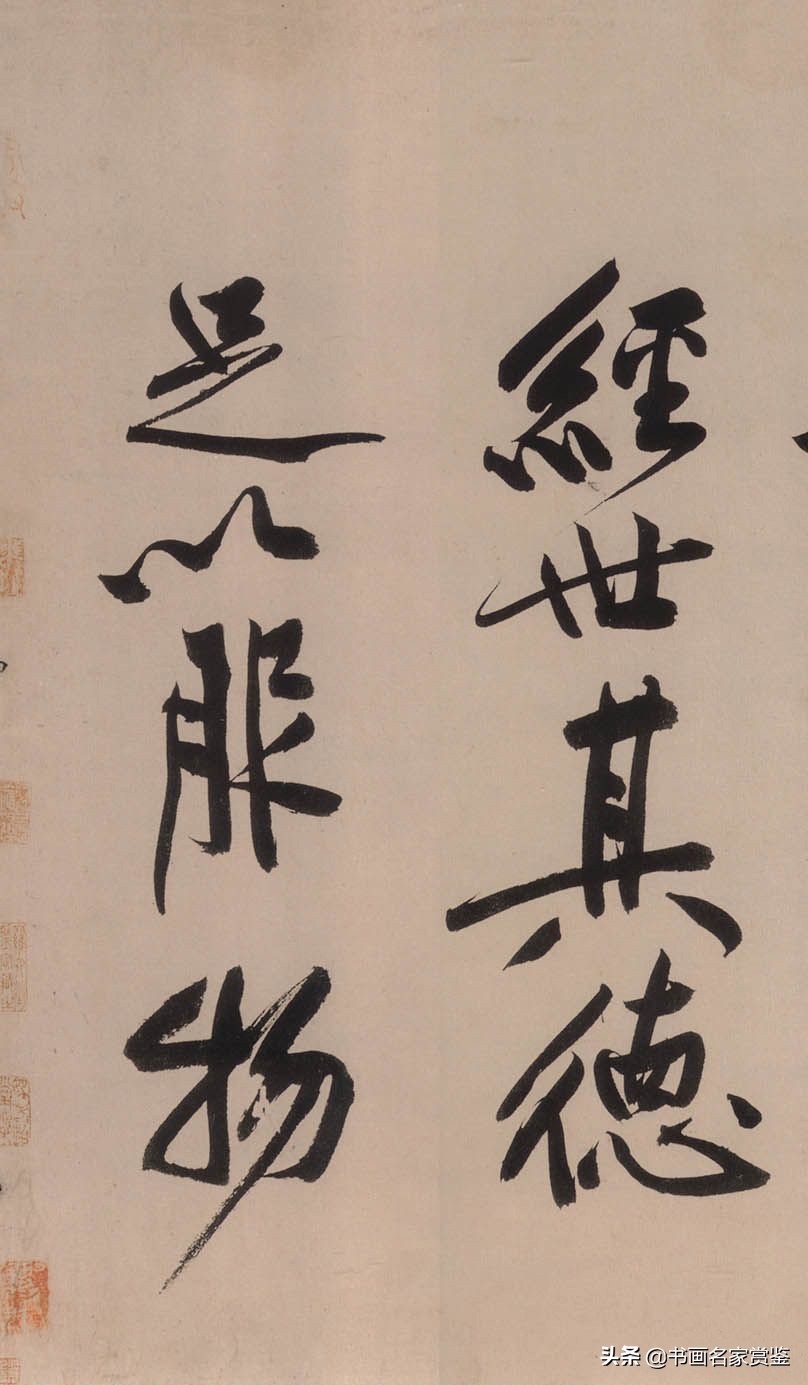 經世其德
足以服物
头条 @书画名家赏鉴